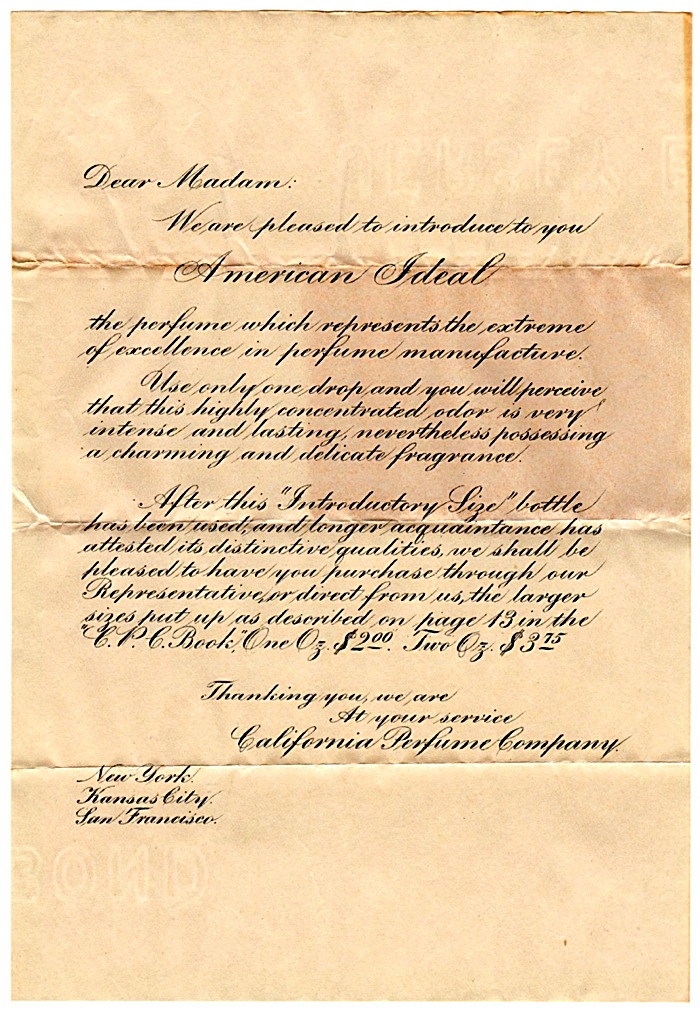 Dear Madam:
We are pleased to introduce to you
American Ideal
the perfume which represents the extreme
of excellence in perfume manufacture.
Use only one drop and you will perceive
that this highly concentrated odor is very
intense and lasting, nevertheless possessing
a charming and delicate fragrance.
After this "Introductory Size" bottle
has been used, and longer acquaintance has
attested its distinctive qualities, we shall be
pleased to have you purchase through our
Representative, or direct from us, the larger
sizes put up as described on page 13 in the
"C. P. C. Book," One Oz. $2.00. Two Oz. $3.75
Thanking you, we are
At your service
California Perfume Company.
New York.
Kansas City.
San Francisco.